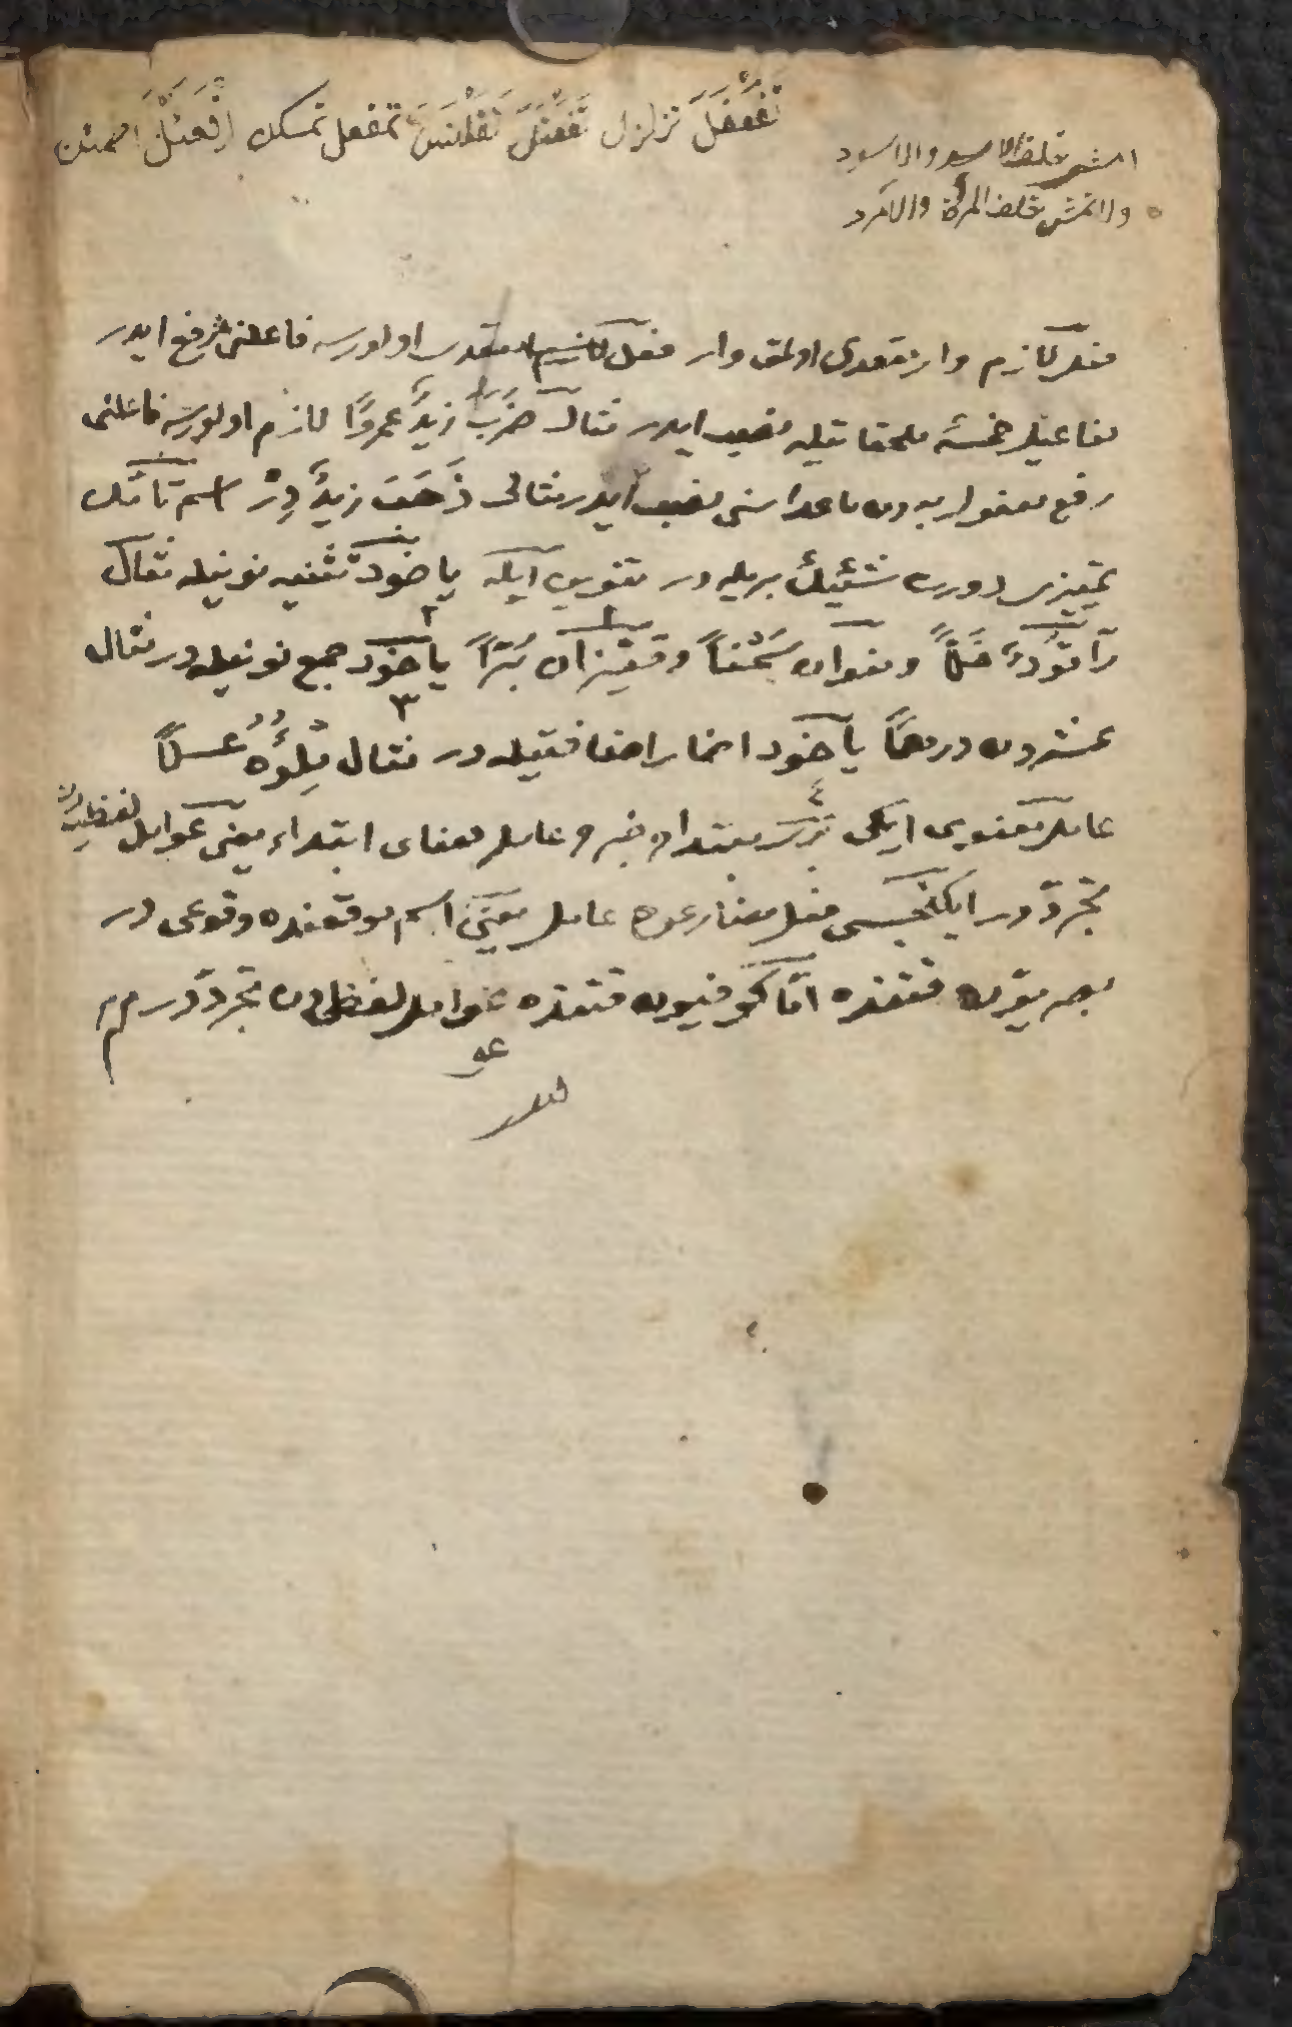 تفعلل تزلزل تفعنل تقلنس تمفعل تمسكن افعلل
امش خلف الاسد والاسود
ولا تمش خلف المرأة والامرد
فعل لازم وار متعدى اولمق وار فعل متعدى اولورسه فاعلنى رفع ايدر
مفاعيل خمسه ملحقاتيله نصب ايدر مثال ضَرَبَ زيدٌ عمروًا لازم اولورسه فاعلنى
رفع مفعول به دن ماعداسنى نصب ايدر مثالى ذَهَبَ زيدٌ در اسم تامّك
تمييزى دورت شيئيله در تنوين ايله ياخود تثنيه نونيله مثال
راقودٌ خلاً و منوان سَمْناً وقفيزان بُرّاً ياخود جمع نونيله در مثال
عشرون درهمًا ياخود اضافتيله در مثال مِلؤُهُ عسلاً
عامل معنوى ايكى در مبتدا و خبر عامل معناى ابتداء يعنى عوامل لفظيه دن
مجرّد در ايكنجيسى فعل مضارعده عامل معنى اسم موقعنده وقوعى در
بصريون قتنده امّا كوفيون قتنده عوامل لفظى دن مجرّد در م م